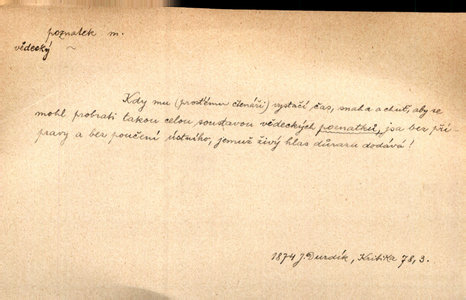 poznatek m.
vědecký ~
Kdy mu (prostému čtenáři) vystačí čas, snaha a chuť, aby se
mohl probrati takou celou soustavou vědeckých poznatků, jsa bez pří-
pravy a bez poučení ústního, jemuž živý hlas důrazu dodává!
1874 J. Durdík, Kritika 78, 3.